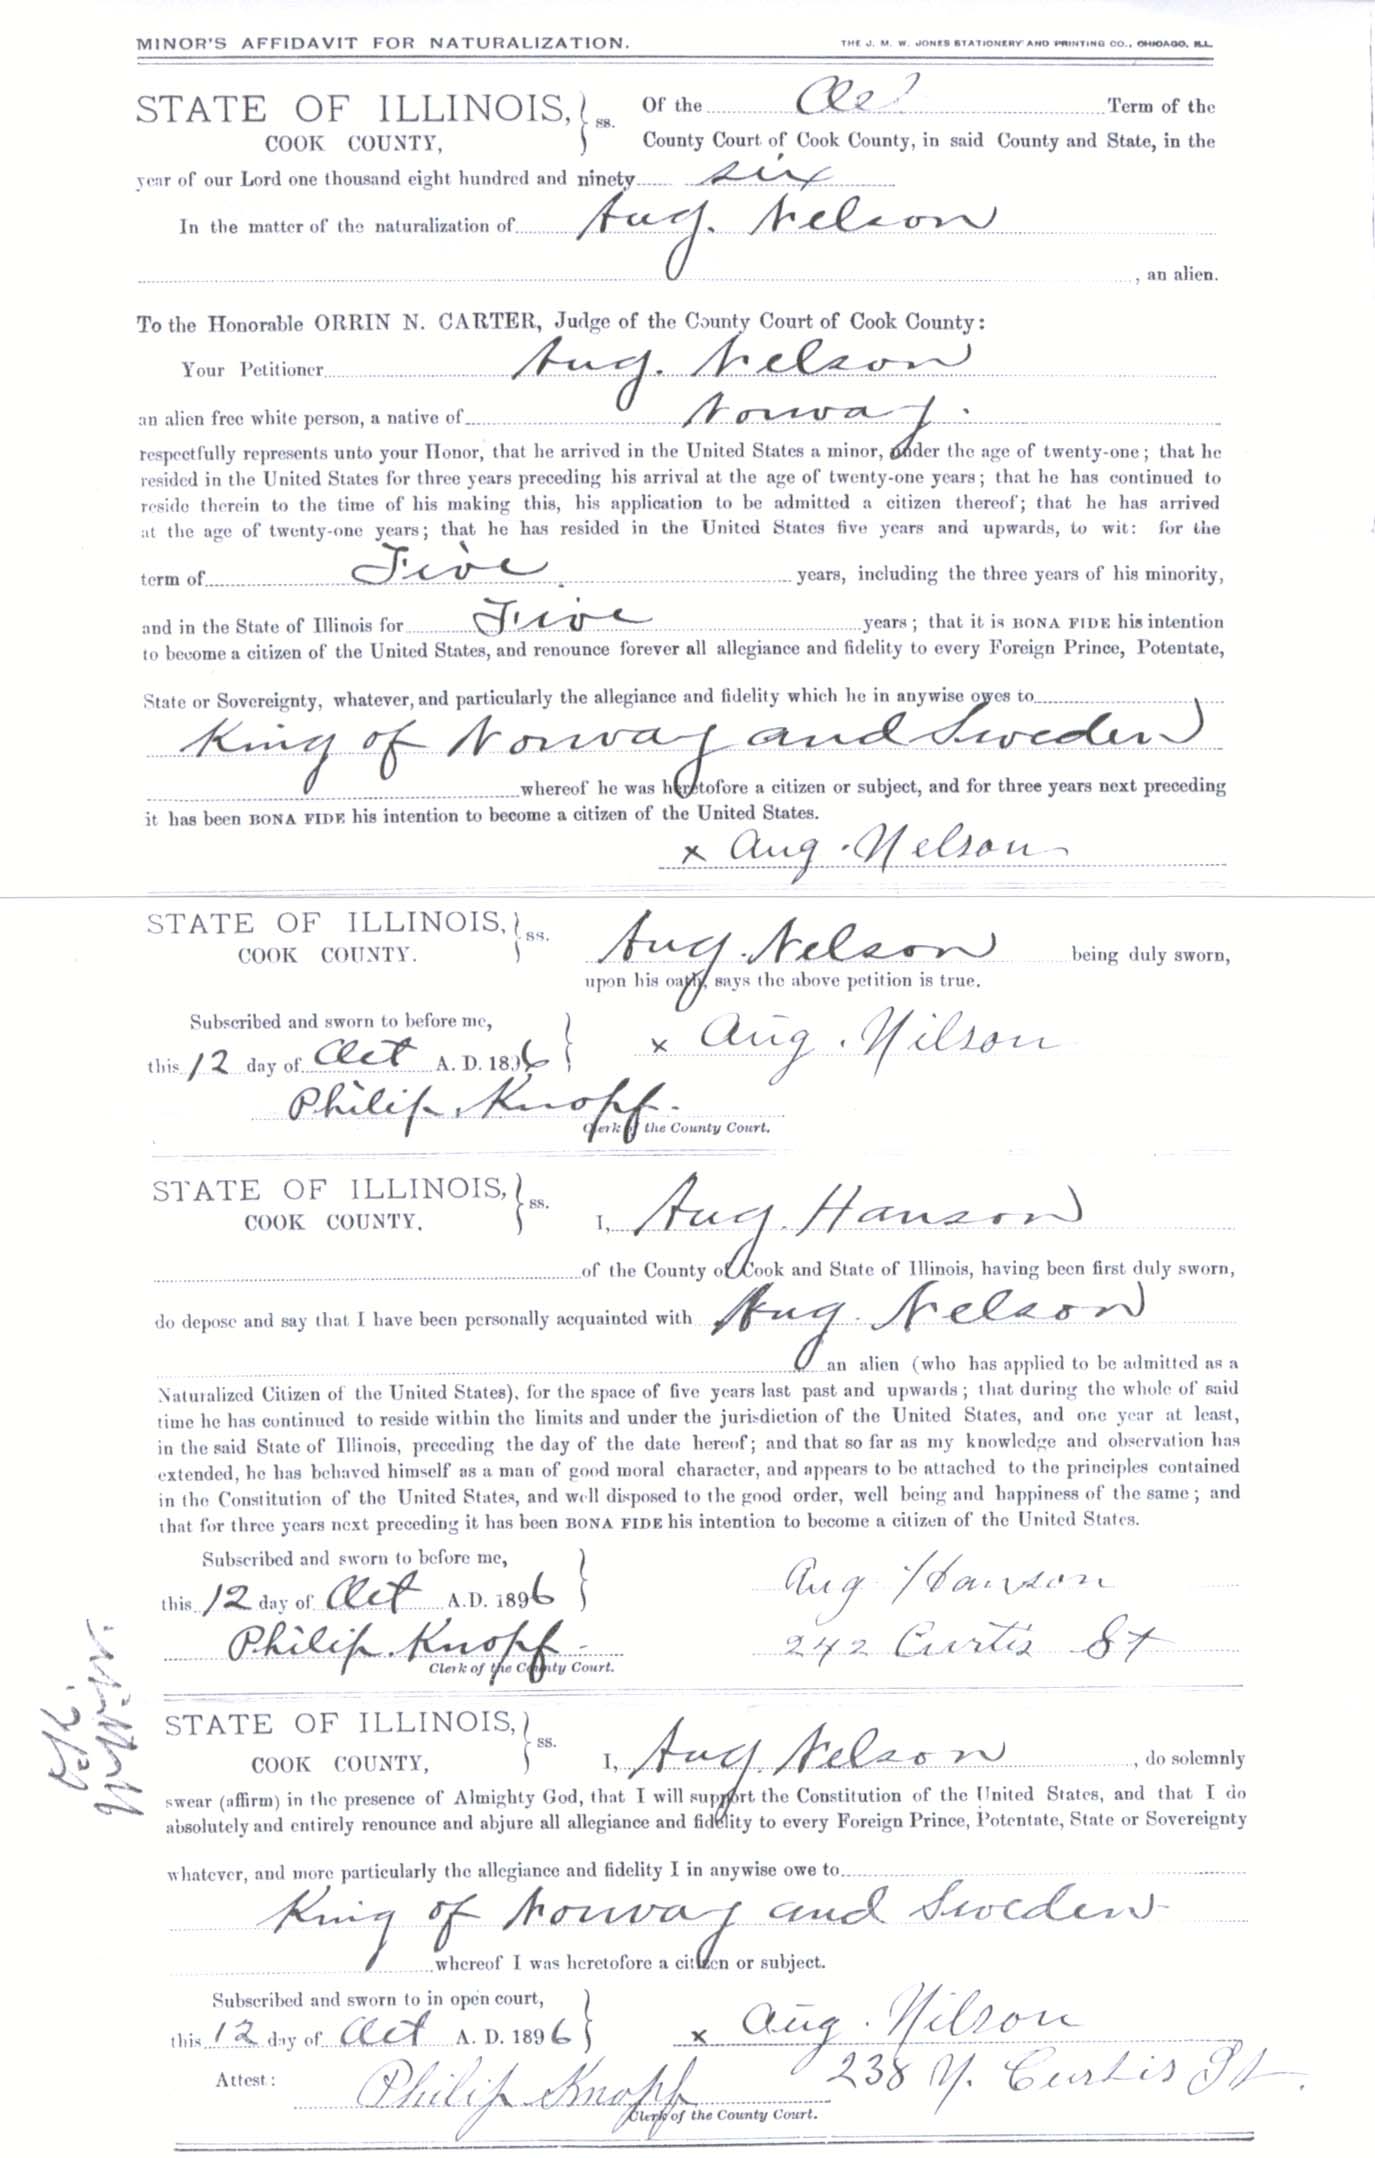 MINOR'S AFFIDAVIT FOR NATURALIZATION. THE J. M. W. JONES STATIONERY AND PRINTING CO., CHICAGO, ILL.
STATE OF ILLINOIS, } ss. Of the Oct Term of the
COOK COUNTY, County Court of Cook County, in said County and State, in the
year of our Lord one thousand eight hundred and ninety six
In the matter of the naturalization of Aug. Nelson
, an alien.
To the Honorable ORRIN N. CARTER, Judge of the County Court of Cook County:
Your Petitioner Aug. Nelson
an alien free white person, a native of Norway.
respectfully represents unto your Honor, that he arrived in the United States a minor, under the age of twenty-one; that he
resided in the United States for three years preceding his arrival at the age of twenty-one years; that he has continued to
reside therein to the time of his making this, his application to be admitted a citizen thereof; that he has arrived
at the age of twenty-one years; that he has resided in the United States five years and upwards, to wit: for the
term of Five years, including the three years of his minority,
and in the State of Illinois for Five years; that it is BONA FIDE his intention
to become a citizen of the United States, and renounce forever all allegiance and fidelity to every Foreign Prince, Potentate,
State or Sovereignty, whatever, and particularly the allegiance and fidelity which he in anywise owes to
King of Norway and Sweden
whereof he was heretofore a citizen or subject, and for three years next preceding
it has been BONA FIDE his intention to become a citizen of the United States.
x Aug. Nelson
STATE OF ILLINOIS, } ss. Aug. Nelson being duly sworn,
COOK COUNTY. upon his oath, says the above petition is true.
Subscribed and sworn to before me,
this 12 day of Oct A. D. 1896 } x Aug. Nilson
Philip Knopf.
Clerk of the County Court.
STATE OF ILLINOIS, } ss.
COOK COUNTY. I, Aug. Hanson
of the County of Cook and State of Illinois, having been first duly sworn,
do depose and say that I have been personally acquainted with Aug. Nelson
an alien (who has applied to be admitted as a
Naturalized Citizen of the United States), for the space of five years last past and upwards; that during the whole of said
time he has continued to reside within the limits and under the jurisdiction of the United States, and one year at least,
in the said State of Illinois, preceding the day of the date hereof; and that so far as my knowledge and observation has
extended, he has behaved himself as a man of good moral character, and appears to be attached to the principles contained
in the Constitution of the United States, and well disposed to the good order, well being and happiness of the same; and
that for three years next preceding it has been BONA FIDE his intention to become a citizen of the United States.
Subscribed and sworn to before me,
this 12 day of Oct A.D. 1896 } Aug Hanson
Philip Knopf 242 Curtis St
Clerk of the County Court.
STATE OF ILLINOIS, } ss.
COOK COUNTY, I, Aug. Nelson, do solemnly
swear (affirm) in the presence of Almighty God, that I will support the Constitution of the United States, and that I do
absolutely and entirely renounce and abjure all allegiance and fidelity to every Foreign Prince, Potentate, State or Sovereignty
whatever, and more particularly the allegiance and fidelity I in anywise owe to
King of Norway and Sweden
whereof I was heretofore a citizen or subject.
Subscribed and sworn to in open court,
this 12 day of Oct A. D. 1896 } x Aug. Nilson
Attest: Philip Knopf 238 N. Curtis St.
Clerk of the County Court.